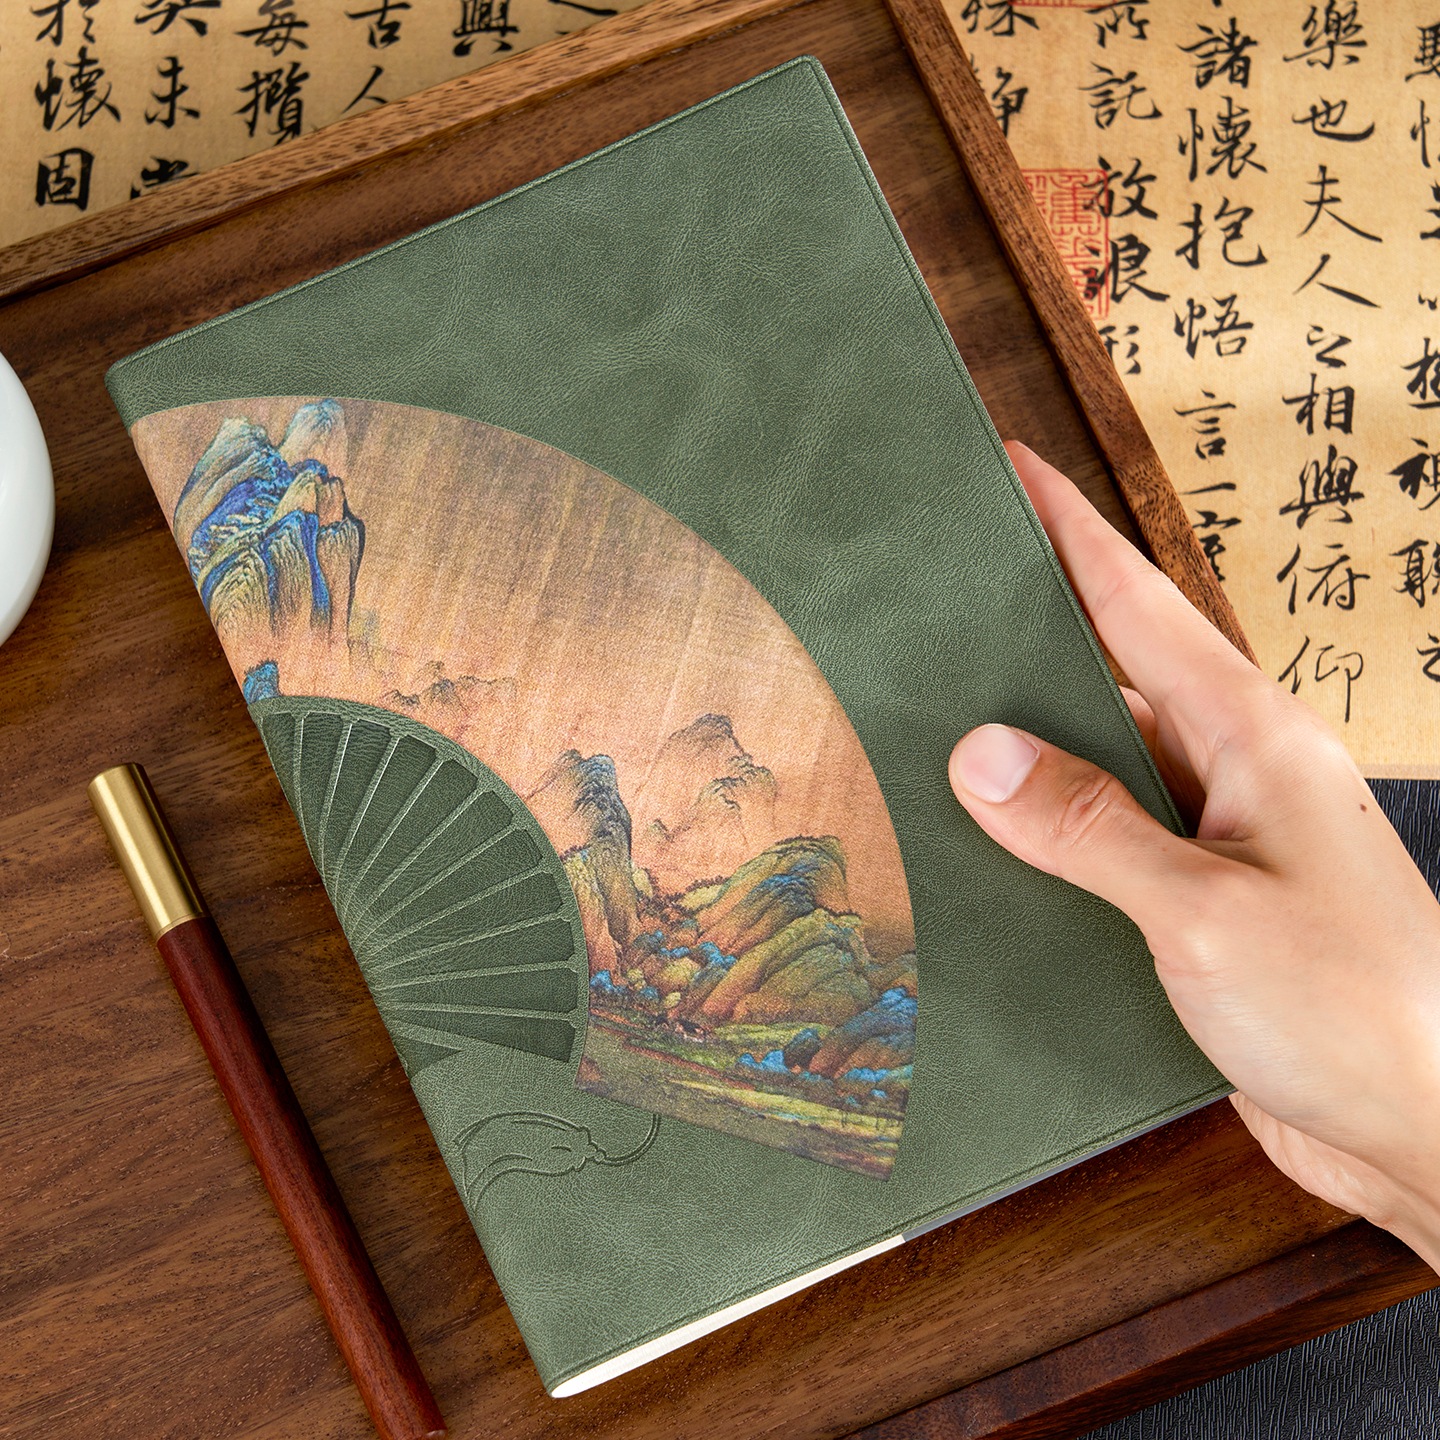 極視聽
樂也夫人之相與俯仰
諸懷抱悟言一室
所託放浪形
殊靜
興
古人
每攬
未嘗
於懷固